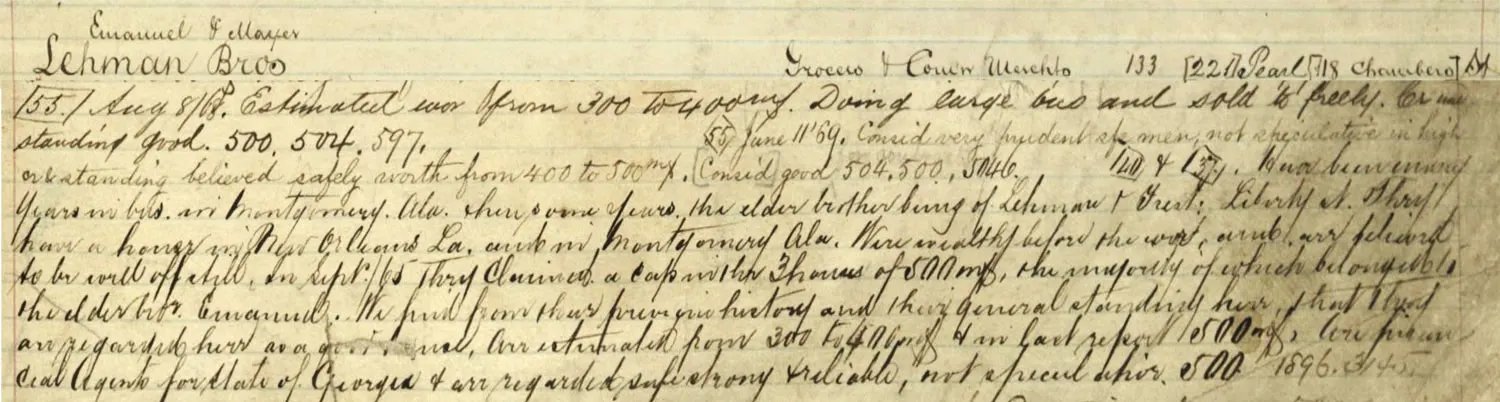 Emanuel & Mayer
Lehman Bros Grocers & Comn Merchts 133 [221 Pearl] [18 Chambers]
[55.] Aug 8/68. Estimated wor from 300 to 400 m/. Doing large bus and sold to freely. Cr and
standing good. 500, 504, 597. [55] June 11 '69. Consid very prudent safe men, not speculative in high
cr & standing believed safely worth from 400 to 500 m/. [Consid] good 504, 500, 5040. [40] & [137]. Have been many
Years in bus. in Montgomery. Ala. then some years, the elder brother being of Lehman & Liberty St. They
have a house in New Orleans La. and in Montgomery Ala. Were wealthy before the war, and are believed
to be well off still, in Sept. /65 They Claimed a cap in the 3 houses of 500 m/, the majority of which belonged to
the elder bro. Emanuel. We find from their previous history and their general standing here, that they
are regarded here as a good house, Are estimated from 300 to 400 m/ & in last report 500 m/, Are finan-
cial Agents for State of Georgia & are regarded safe strong & reliable, not speculative. 500 1896. 3145